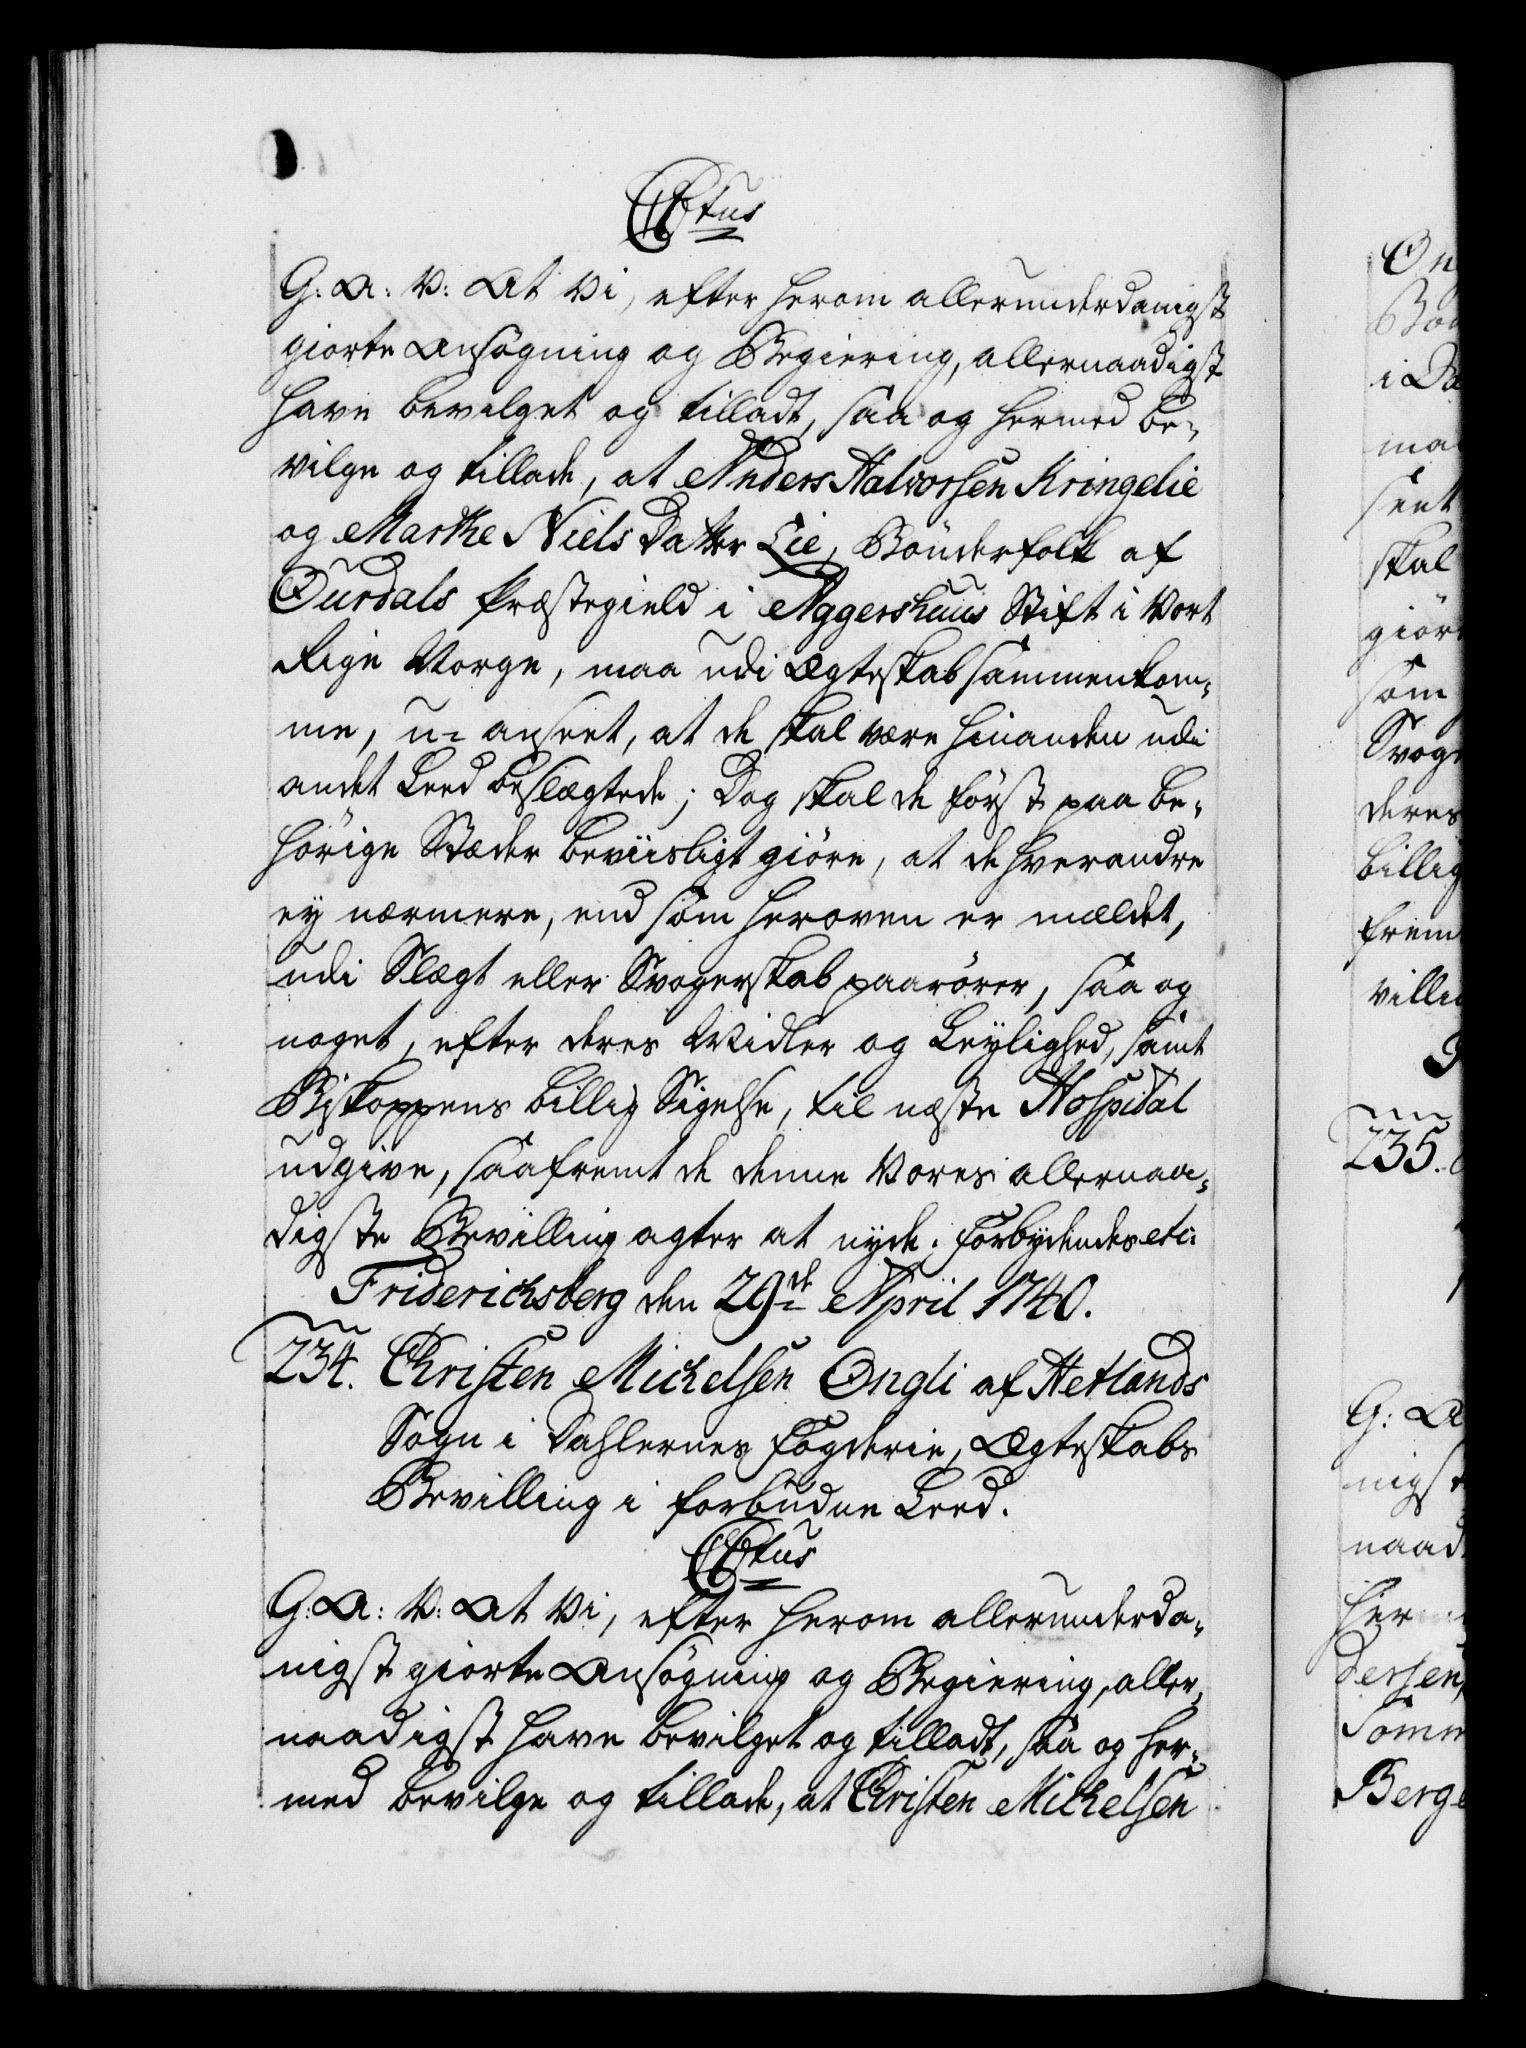 C6tus
G: A: V: At Vi, efter herom allerunderdanigst
giorte Ansøgning og Begiering, allernaadigst
have bevilget og tilladt, saa og hermed be-
vilge og tillade, at Anders Halvorsen Kringelie
og Marthe Niels Datter Lie, Bønderfolk af
Ourdals Præstegield i Aggershuus Stift i Vort
Rige Norge, maa udi Ægteskab sammenkom-
me, u-anseet, at de skal være hinanden udi
andet Leed beslægtede; Dog skal de først paa be-
hørige Stæder beviisligt giøre, at de hverandre
ey nærmere, end som heroven er mældet,
udi Slægt eller Svogerskab paarører, saa og
noget, efter deres Midler og Leylighed, samt
Biskoppens billig Sigelse, til næste Hospital
udgive, saafremt de denne Vores allernaa-
digste Bevilling agter at nyde; Forbydendes etc:
Friderichsberg den 29de April 1740.
234. Christen Michelsen Ongli af Hetlands
Sogn i Dahlernes Fogderie, Ægteskabs
Bevilling i forbudne Leed.
C6tus
G: A: V: At Vi, efter herom allerunderda-
nigst giorte Ansøgning og Begiering, aller-
naadigst have bevilget og tilladt, saa og her-
med bevilge og tillade, at Christen Michelsen
235.